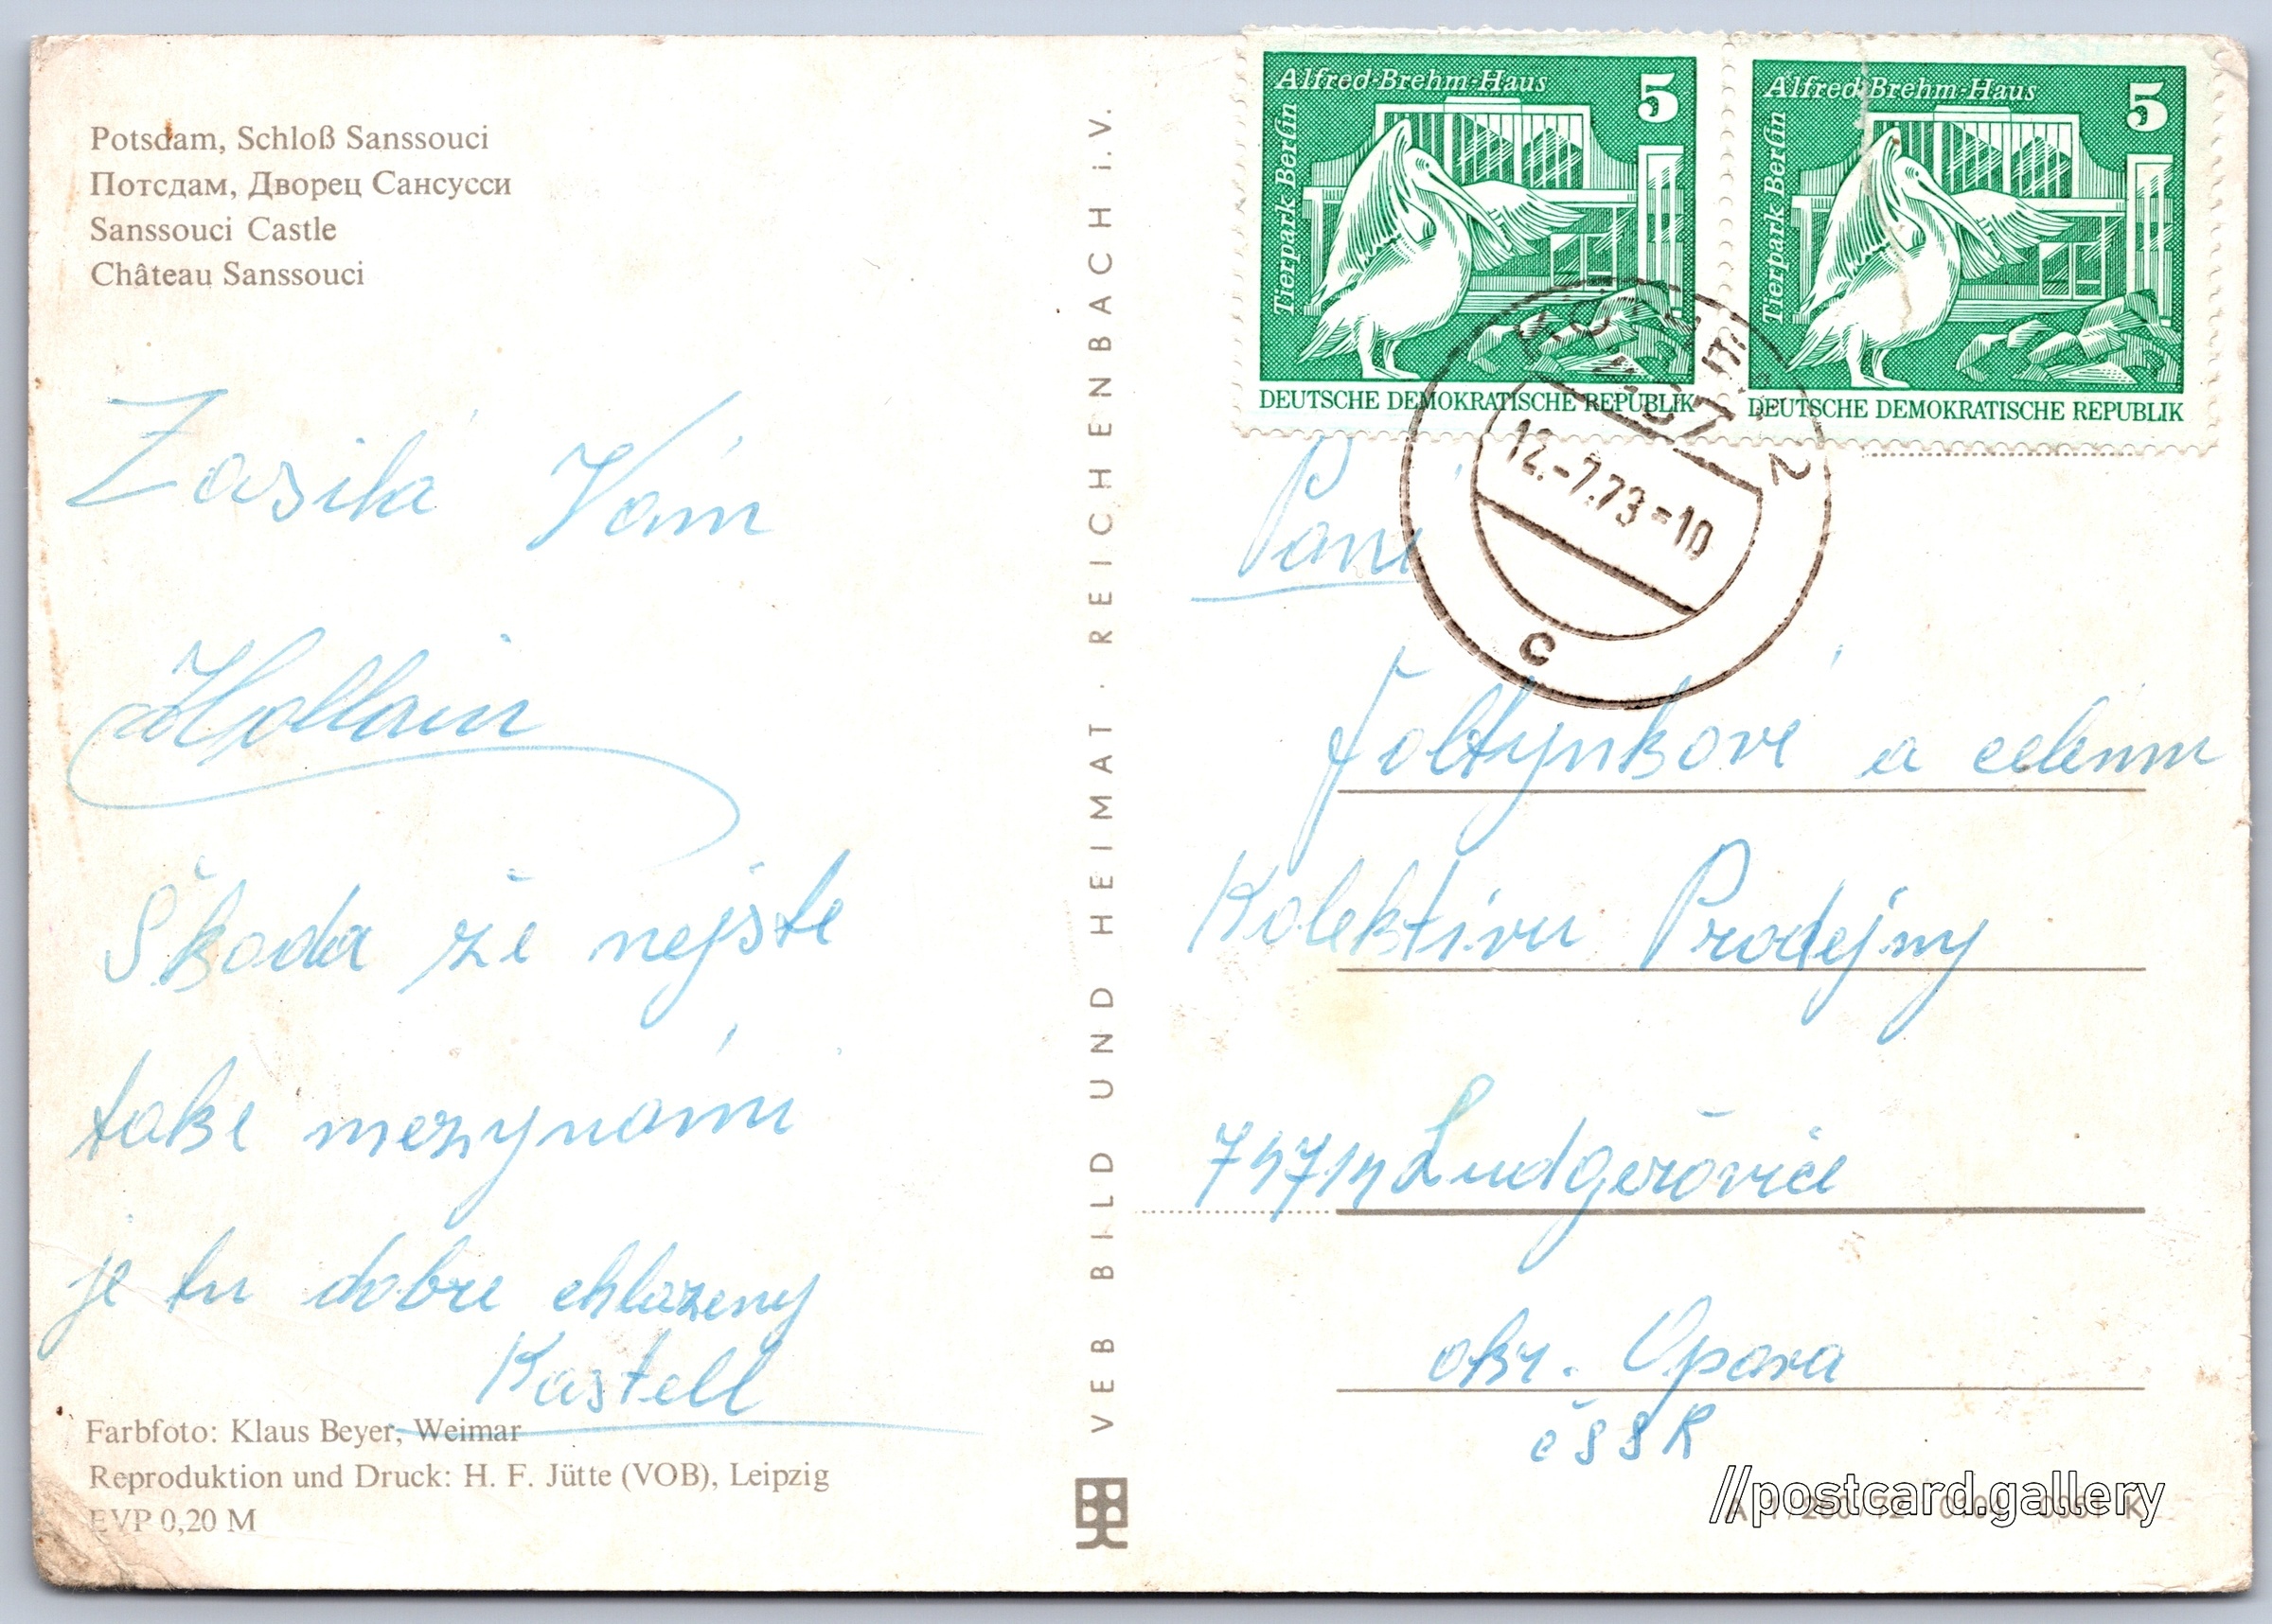 Potsdam, Schloß Sanssouci
Потсдам, Дворец Сансусси
Sanssouci Castle
Château Sanssouci
Zasílá Vám
Škoda že nejste
take mezy námi
je tu dobre chlazeny
Kastell
Farbfoto: Klaus Beyer, Weimar
Reproduktion und Druck: H. F. Jütte (VOB), Leipzig
EVP 0,20 M
VEB BILD UND HEIMAT · REICHENBACH i.V.
Alfred-Brehm-Haus 5
Tierpark Berlin
DEUTSCHE DEMOKRATISCHE REPUBLIK
Alfred-Brehm-Haus 5
Tierpark Berlin
DEUTSCHE DEMOKRATISCHE REPUBLIK
2
12.-7.73-10
c
Paní
Foltýnkové a celemu
Kolektivu Prodejny
74714 Ludgeřovice
okr. Opava
ČSSR
//postcard.gallery